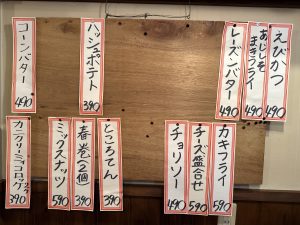 えびかつ
490
あじしそ
まきフライ
490
レーズンバター
490
ハッシュポテト
390
コーンバター
490
カキフライ
590
チーズ盛合せ
590
チョリソー
490
ところてん
390
春巻(2個)
390
ミックスナッツ
590
カニクリーミーコロッケ
390